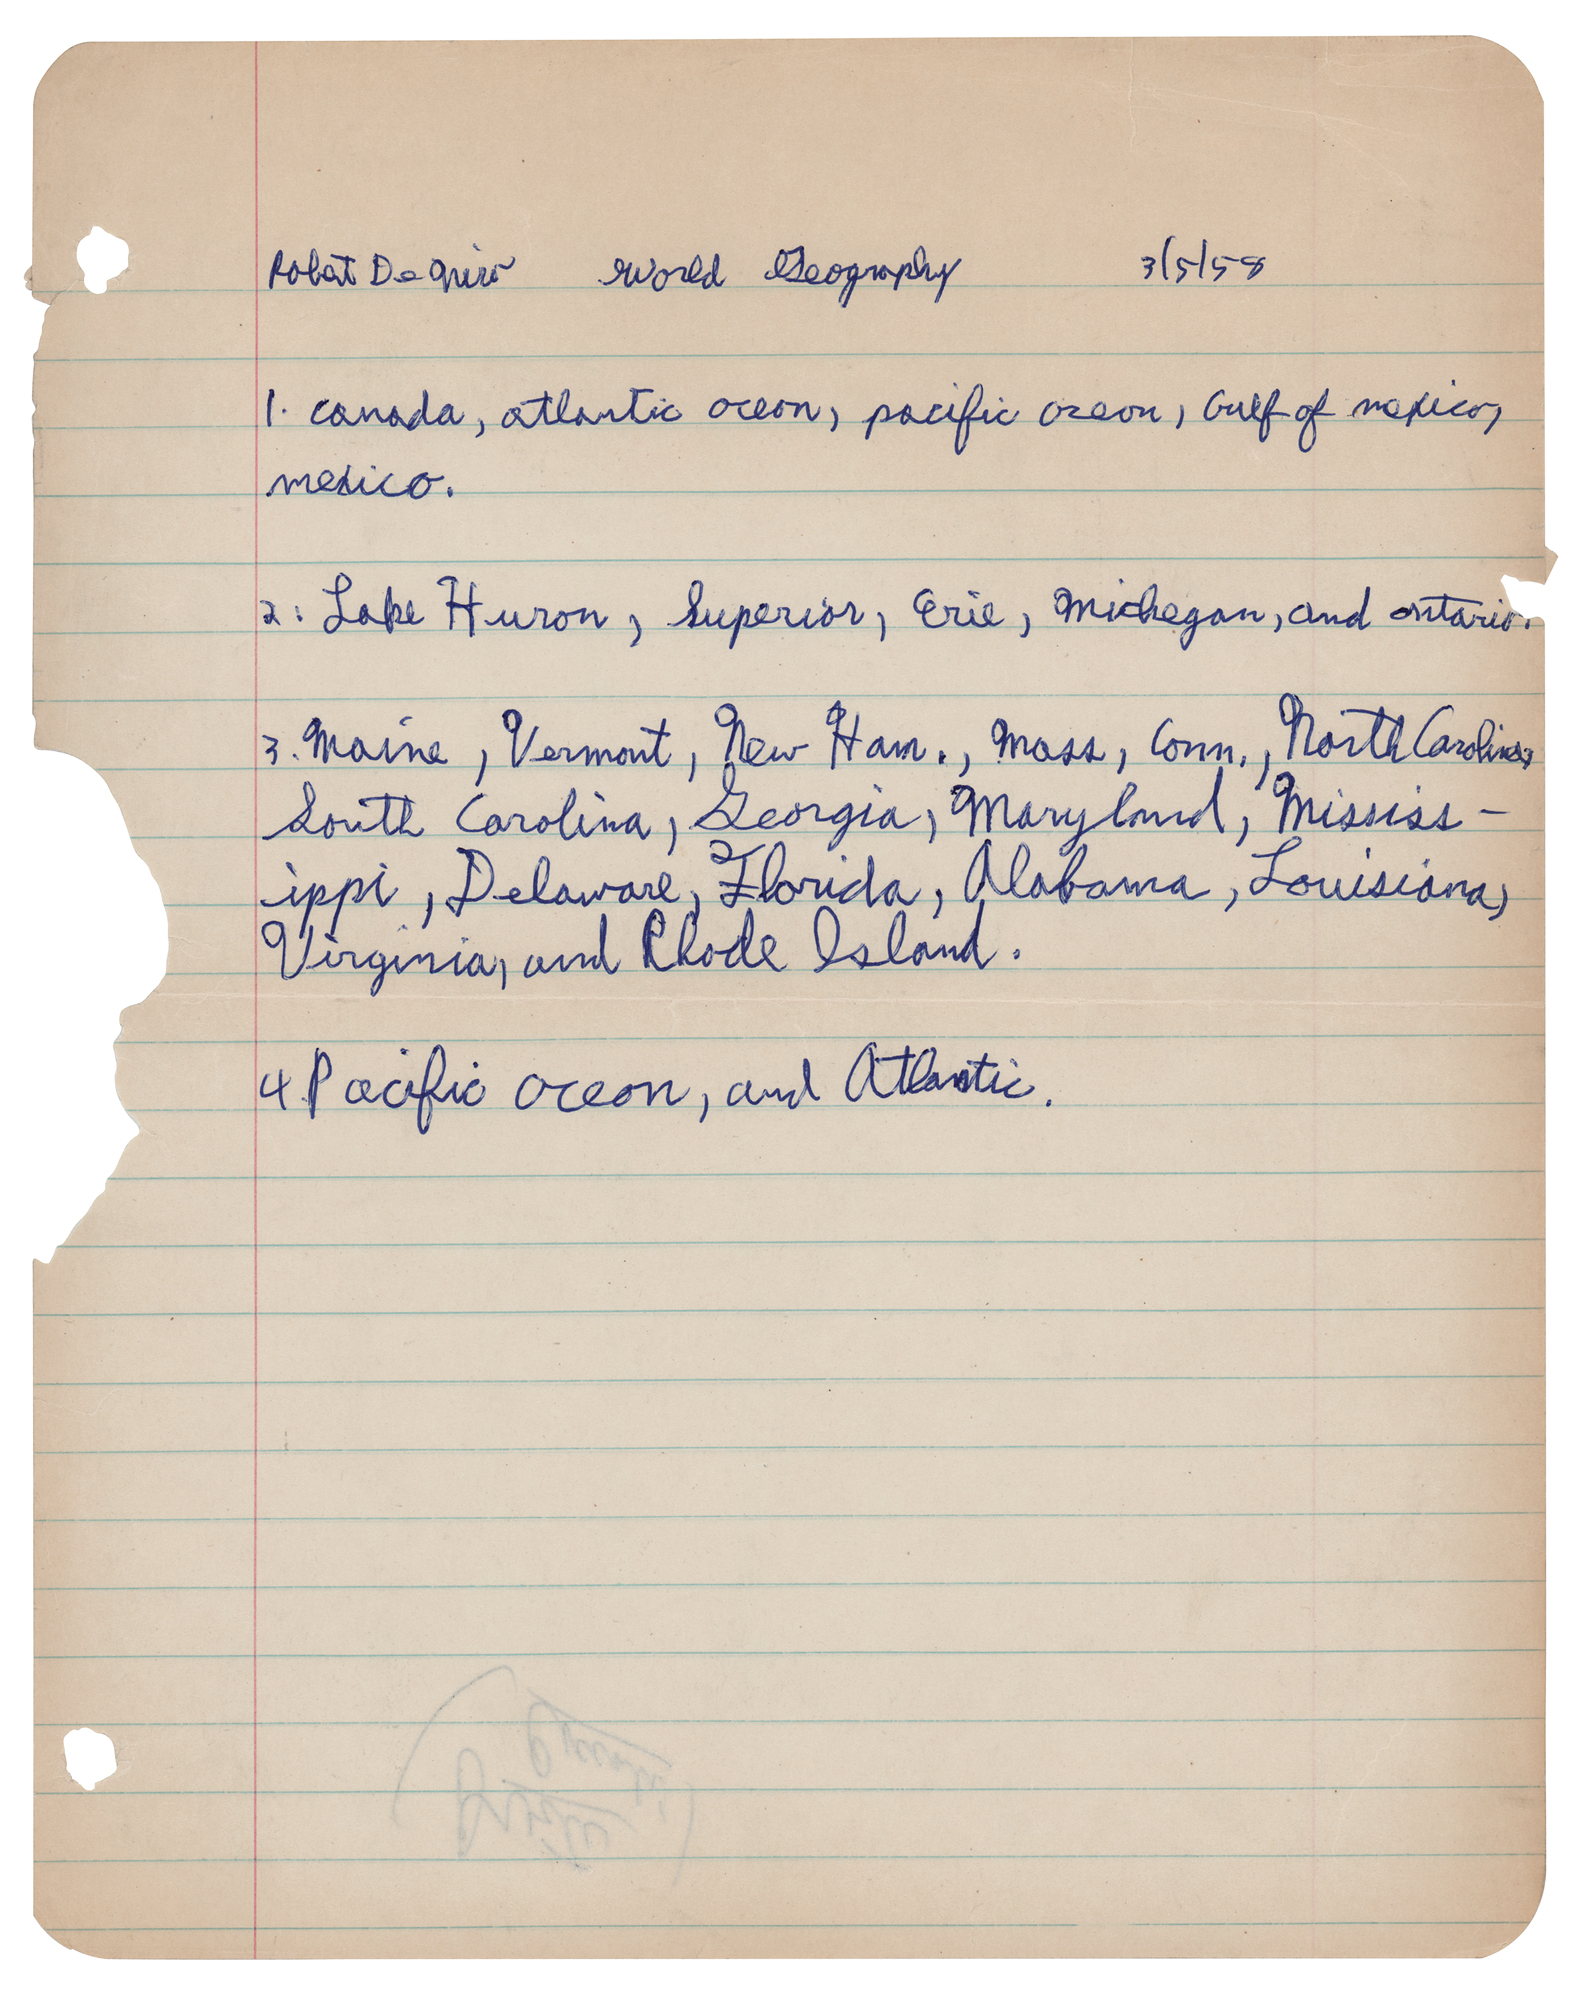 Robert De Niro World Geography 3/5/58
1. canada, atlantic ocean, pacific ocean, Gulf of mexico,
mexico.
2. Lake Huron, Superior, Erie, Michegan, and ontario.
3. Maine, Vermont, New Ham., Mass, Conn., North Carolina,
South Carolina, Georgia, Maryland, Mississ-
ippi, Delaware, Florida, Alabama, Louisiana,
Virginia, and Rhode Island.
4. Pacific Ocean, and Atlantic.